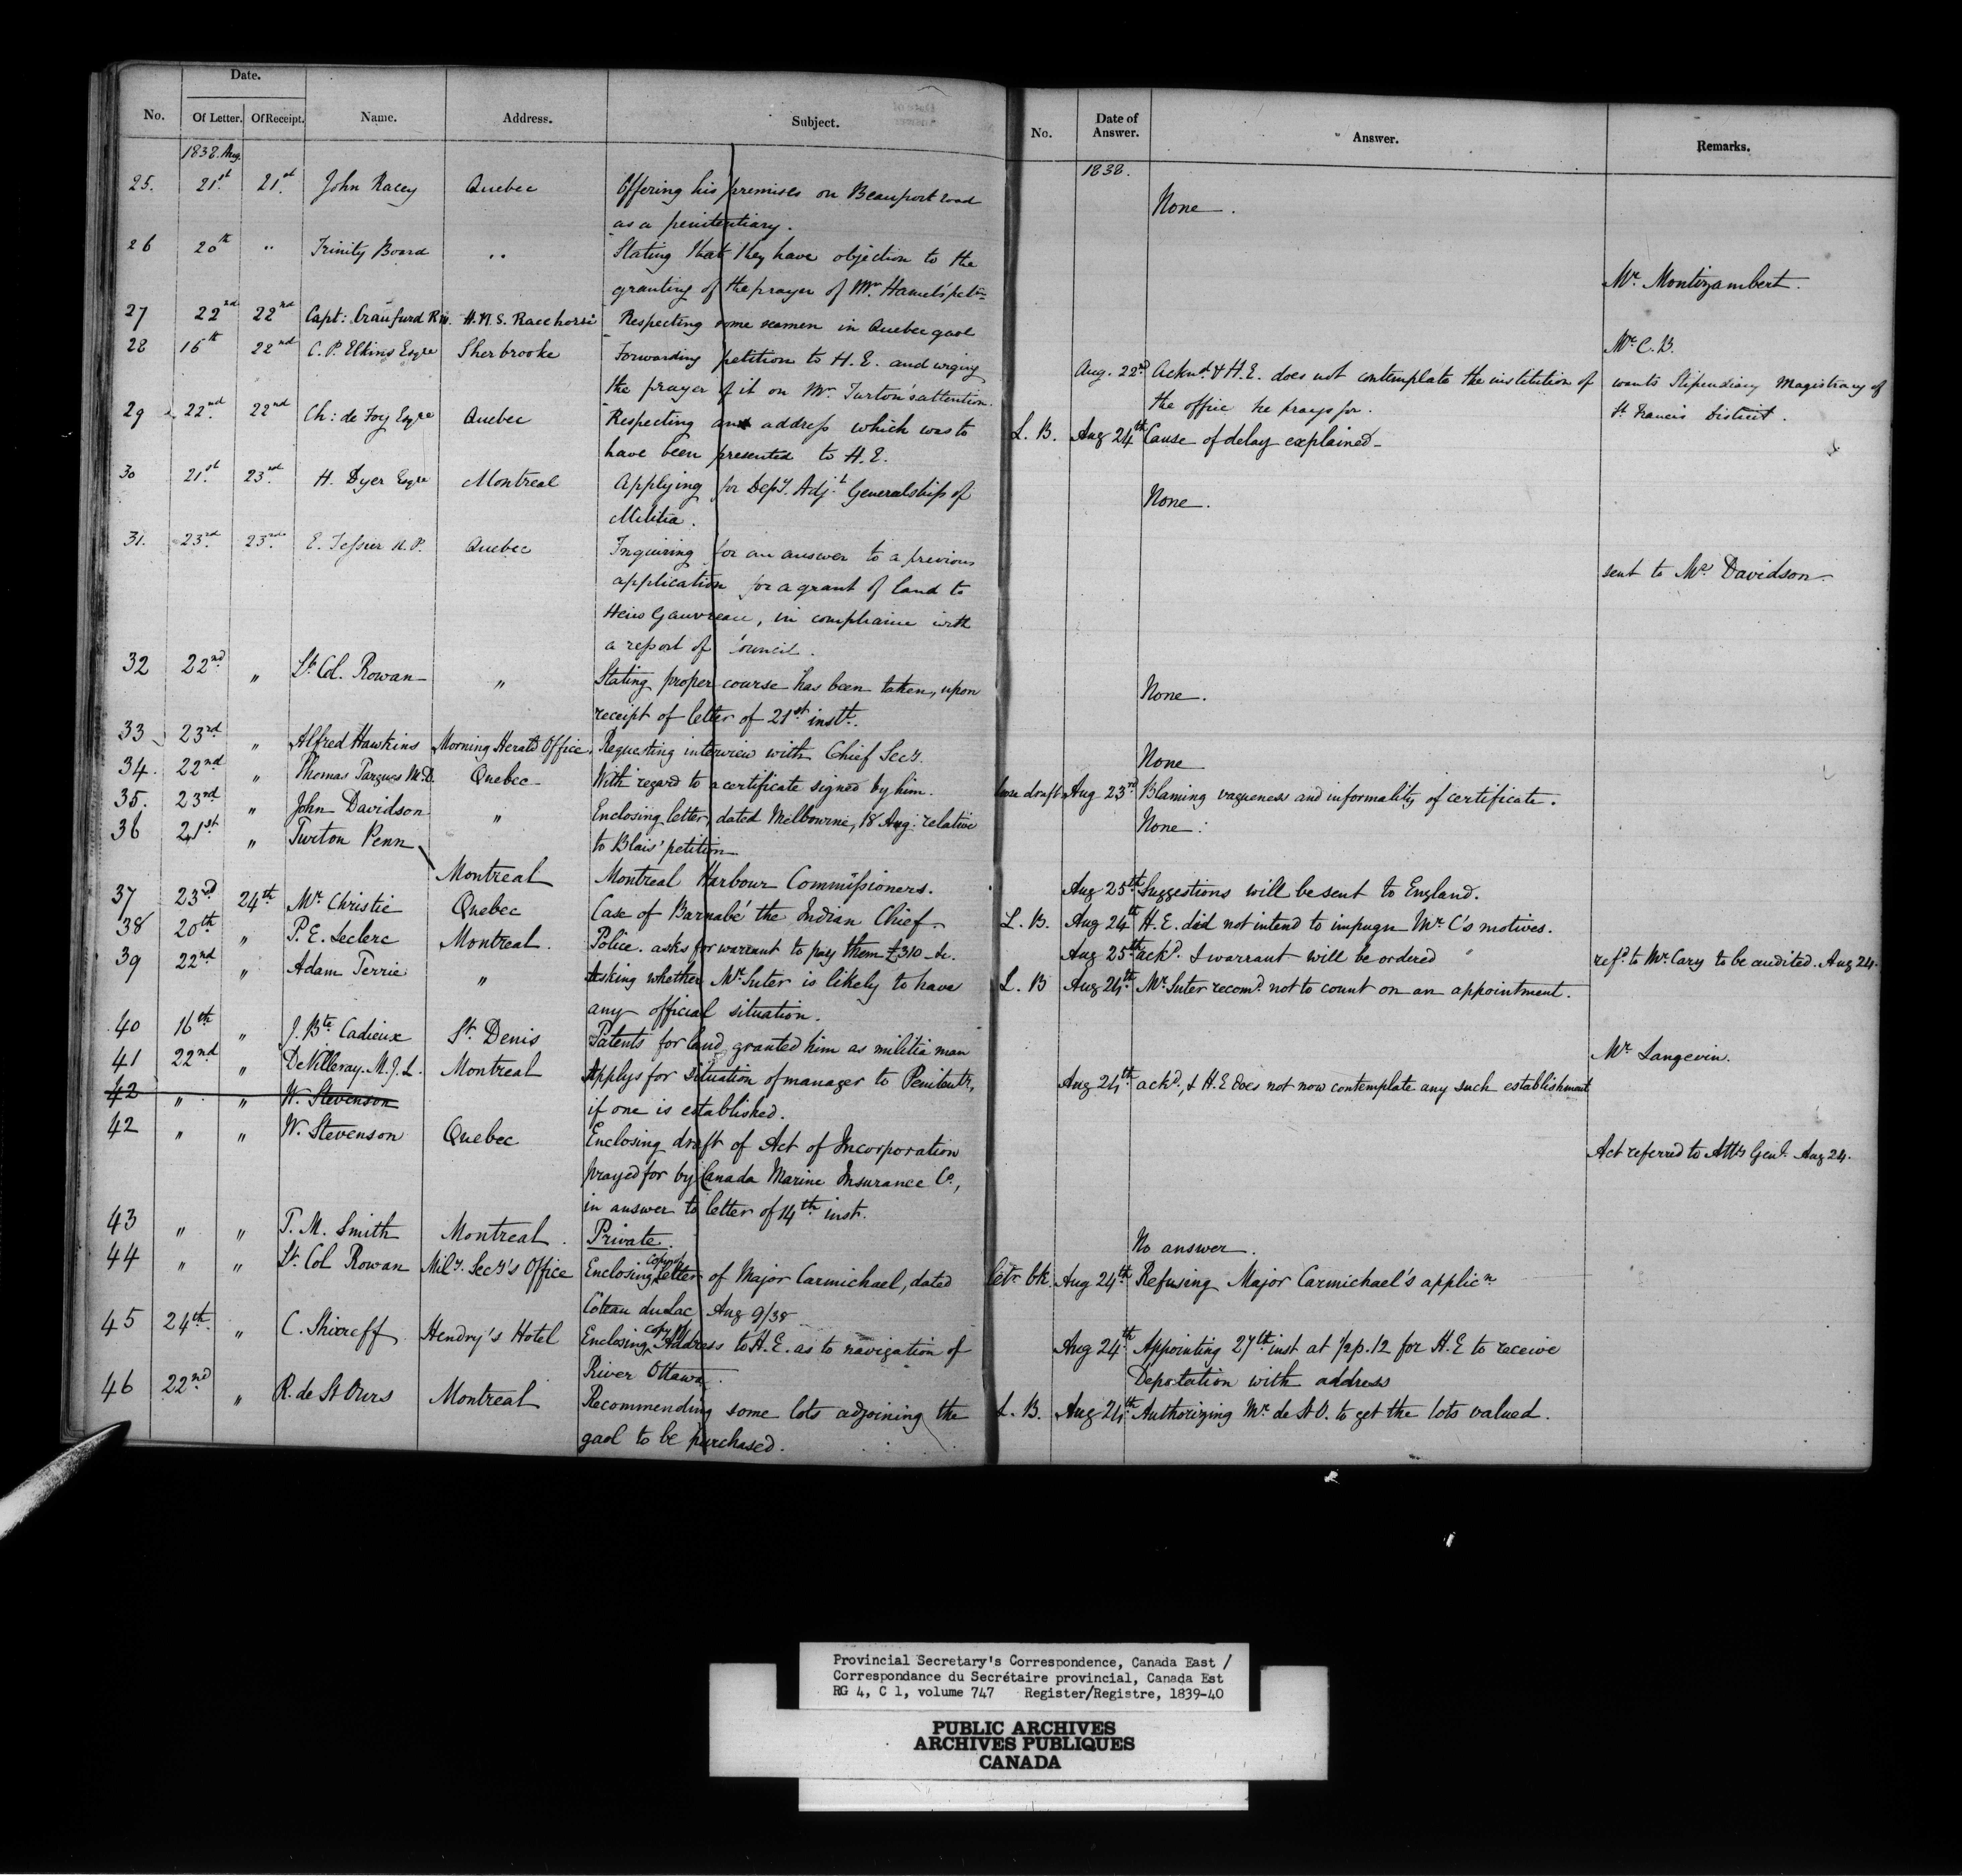 Date.
No. Of Letter. Of Receipt. Name. Address. Subject. No. Date of Answer. Answer. Remarks.
1838. Aug. 1838.
25. 21st 21st John Racey Quebec Offering his premises on Beauport road None.
as a penitentiary.
26 20th " Trinity Board " Stating that they have objection to the
granting of the prayer of Mr. Hamel's petn Mr. Montizambert.
27 22nd 22nd Capt: Craufurd RN. H.M.S. Racehorse Respecting some seamen in Quebec gaol
28 16th 22nd C. P. Elkins Esqre Sherbrooke Forwarding petition to H. E. and urging Aug. 22nd Acknd. & H.E. does not contemplate the institution of Mr. C. B.
the prayer of it on Mr. Turton's attention. the office he prays for. wants Stipendiary Magistracy of
St. Francis District.
29 22nd 22nd Ch: de Foy Esqre Quebec Respecting an address which was to L. B. Aug 24th Cause of delay explained
have been presented to H. E.
30 21st 23rd H. Dyer Esqre Montreal Applying for Depy. Adjt. Generalship of None.
Militia.
31. 23rd 23rd E. Tessier N. P. Quebec Inquiring for an answer to a previous
application for a grant of land to sent to Mr. Davidson
Heirs Gauvreau, in compliance with
a report of Council.
32 22nd " Lt. Col. Rowan " Stating proper course has been taken, upon None.
receipt of letter of 21st instt.
33 23rd " Alfred Hawkins Morning Herald Office. Requesting interview with Chief Secy. None
34. 22nd " Thomas Fargues M.D. Quebec With regard to a certificate signed by him. loose draft Aug 23rd Blaming vagueness and informality of certificate.
35. 23rd " John Davidson " Enclosing letter, dated Melbourne, 18 Aug. relative None.
to Blais' petition
36 21st " Turton Penn Montreal Montreal Harbour Commissioners. Aug 25th Suggestions will be sent to England.
37 23rd 24th Mr. Christie Quebec Case of Barnabé the Indian Chief. L. B. Aug 24th H. E. did not intend to impugn Mr. C's motives.
38 20th " P. E. Leclerc Montreal. Police. asks for warrant to pay them £310 Aug 25th ackd. & warrant will be ordered refd. to Mr. Cary to be audited. Aug 24.
39 22nd " Adam Ferrie " Asking whether Mr. Suter is likely to have L. B Aug 24th Mr. Suter recomd. not to count on an appointment.
any official situation.
40 16th " J. Bte. Cadieux St. Denis Patents for land granted him as militia man Mr. Langevin.
41 22nd " DeVilleray. M. J. L. Montreal Applys for situation of manager to Penitenty, Aug 24th ackd. & H.E does not now contemplate any such establishment
42 " " W. Stevenson if one is established.
42 " " W. Stevenson Quebec Enclosing draft of Act of Incorporation Act referred to Atty Genl. Aug 24.
prayed for by Canada Marine Insurance Co.,
in answer to letter of 14th inst.
43 " " T. M. Smith Montreal. Private. No answer.
44 " " Lt. Col Rowan Mily. Secy's Office Enclosing copy of letter of Major Carmichael, dated letr bk. Aug 24th Refusing Major Carmichael's applicn
Côteau du Lac Aug 9/38
45 24th " C. Shirreff Hendry's Hotel Enclosing copy of Address to H.E. as to navigation of Aug 24th Appointing 27th inst at ½ p. 12 for H.E to receive
River Ottawa. Deputation with address
46 22nd " R. de St Ours Montreal Recommending some lots adjoining the L. B. Aug 24th Authorizing Mr. de St O. to get the lots valued.
gaol to be purchased.
Provincial Secretary's Correspondence, Canada East /
Correspondance du Secrétaire provincial, Canada Est
RG 4, C 1, volume 747 Register/Registre, 1839-40
PUBLIC ARCHIVES
ARCHIVES PUBLIQUES
CANADA